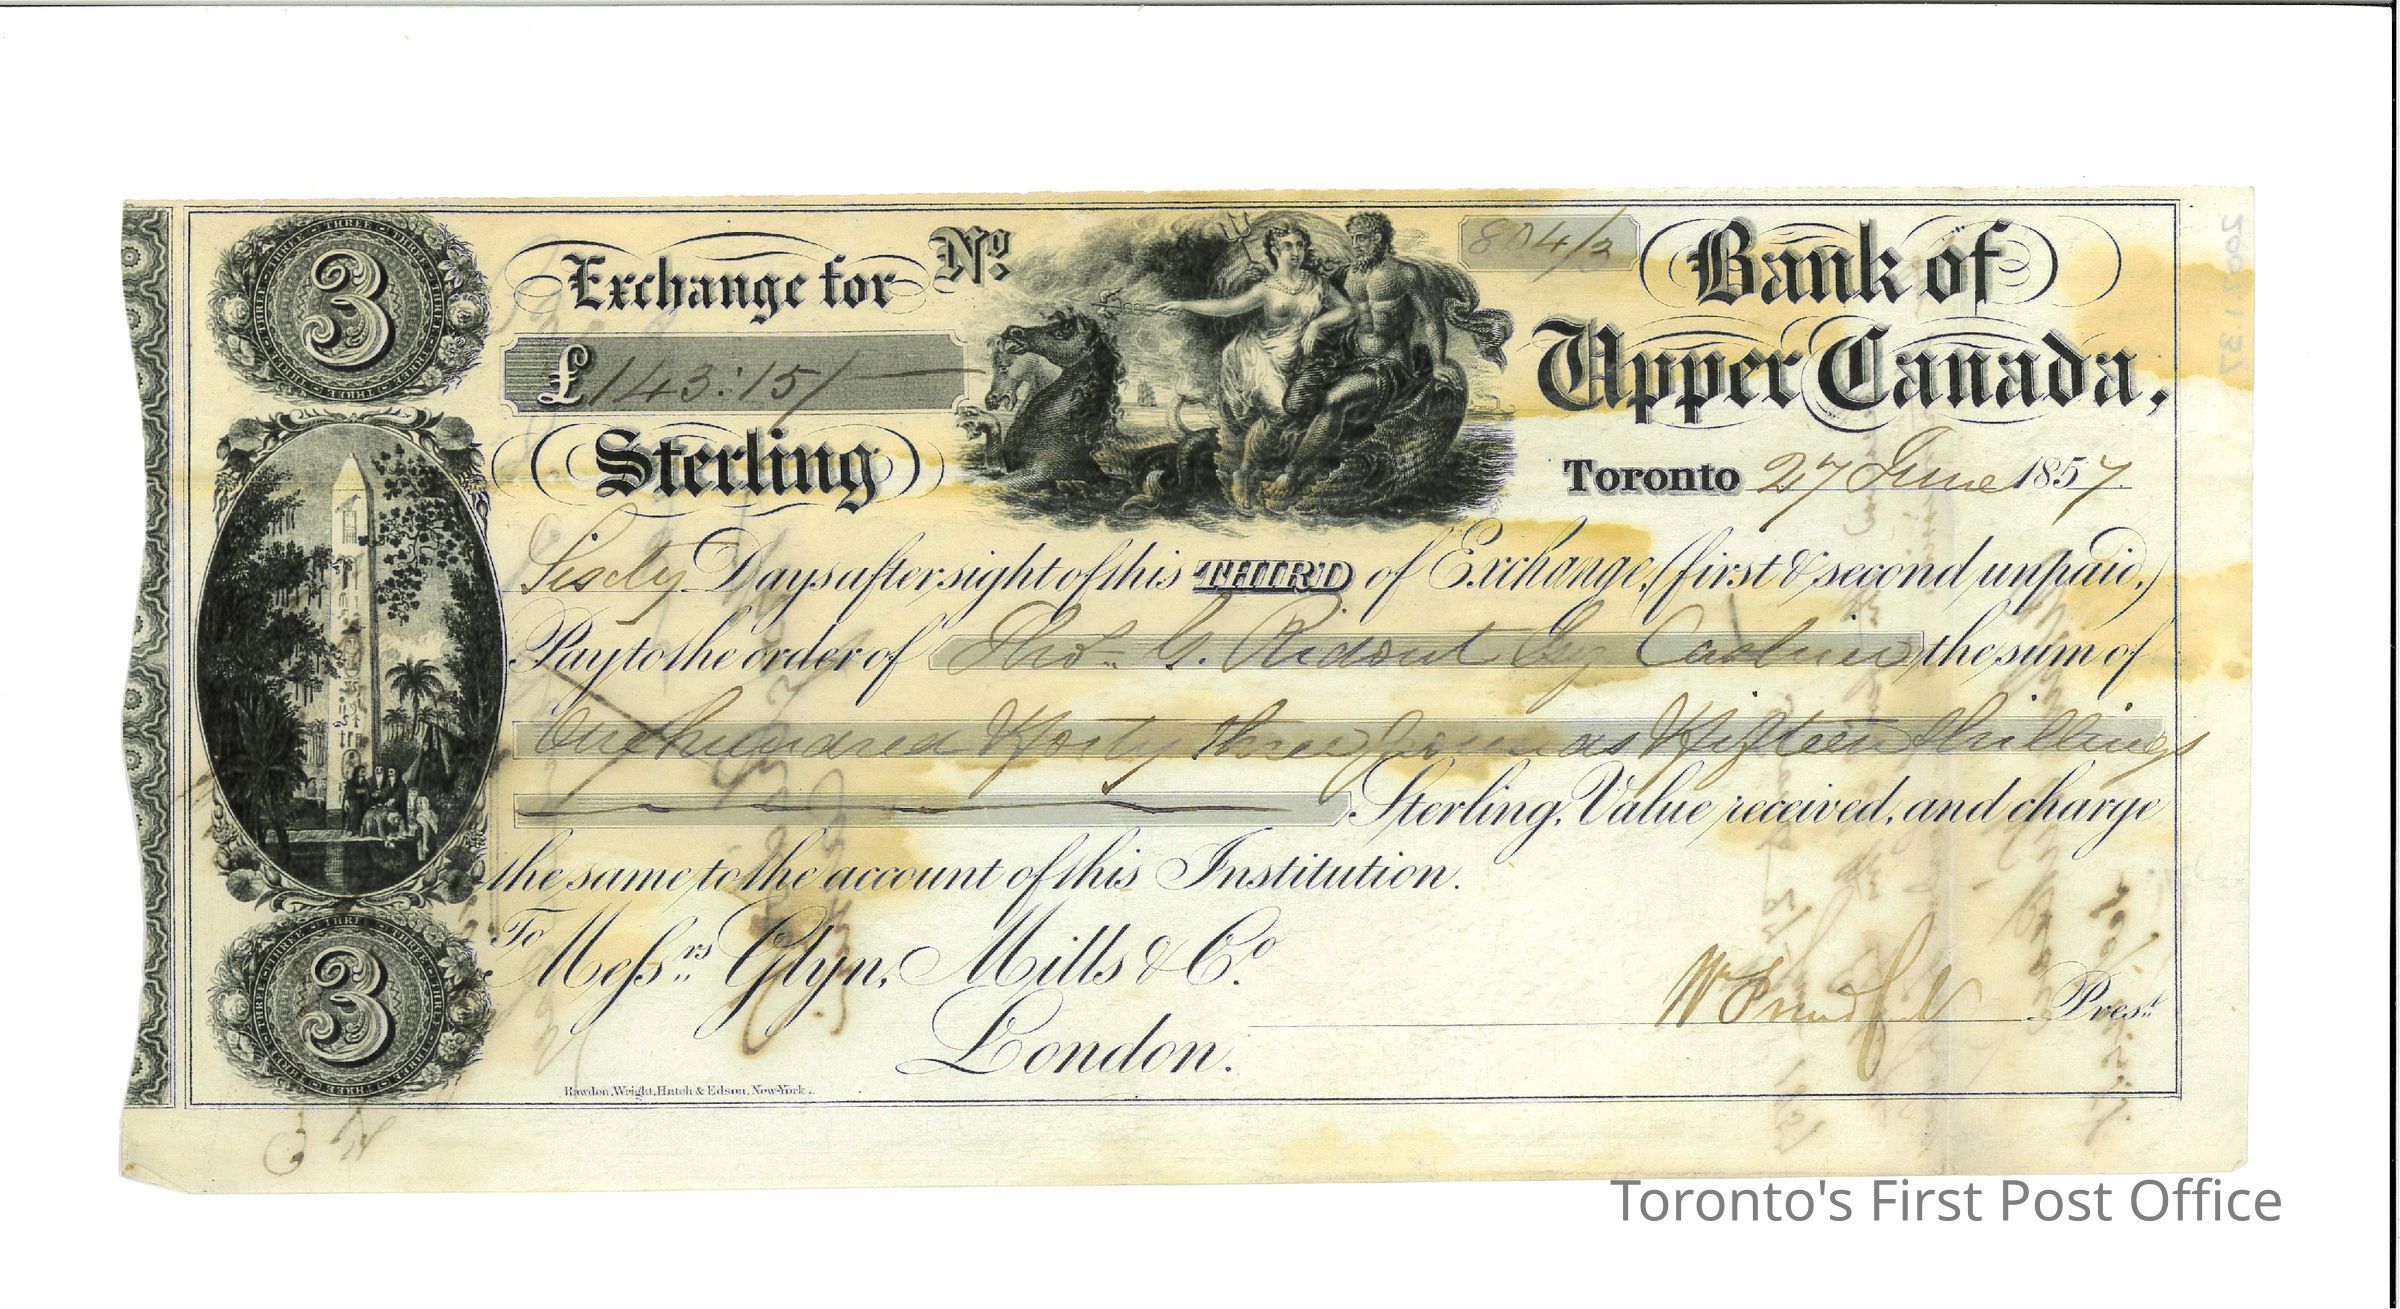 3
Exchange for
£143:15/
Sterling
No.
804/3
Bank of
Upper Canada,
Toronto 27 June 1857.
Sixty Days after sight of this THIRD of Exchange, (first & second unpaid,)
Pay to the order of Thos. G. Ridout Esq Cashier the sum of
One hundred & forty three pounds & fifteen shillings
Sterling, Value received, and charge
the same, to the account of this Institution.
To Messrs. Glyn, Mills & Co.
London.
Prest.
3
Rawdon, Wright, Hatch & Edson, New-York.
2007.1.37
Toronto's First Post Office